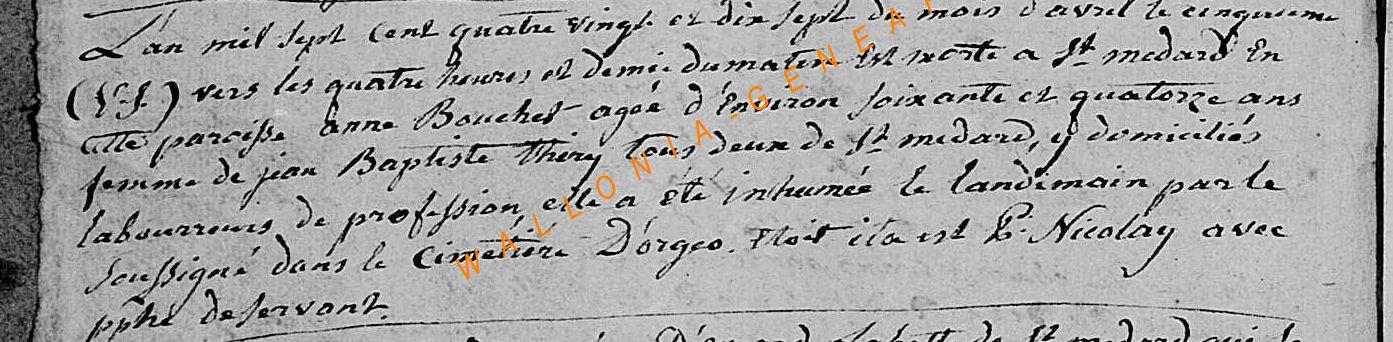 L'an mil sept cent quatre vingt et dix sept du mois d'avril le cinquieme
(V.S.) vers les quatre heures et demie du matin Est morte a St medard En
cette paroisse anne Bouchet ageé d'Environ soixante et quatorze ans
femme de jean Baptiste thiry tous deux de St medard, y domiciliés
labourreurs de profession, elle a été inhumée le landimain par le
soussigné dans le Cimetière D'orgeo. ita est Nicolay avec
pphé deservant.
de St medard qui
WALLONIA-GENEA